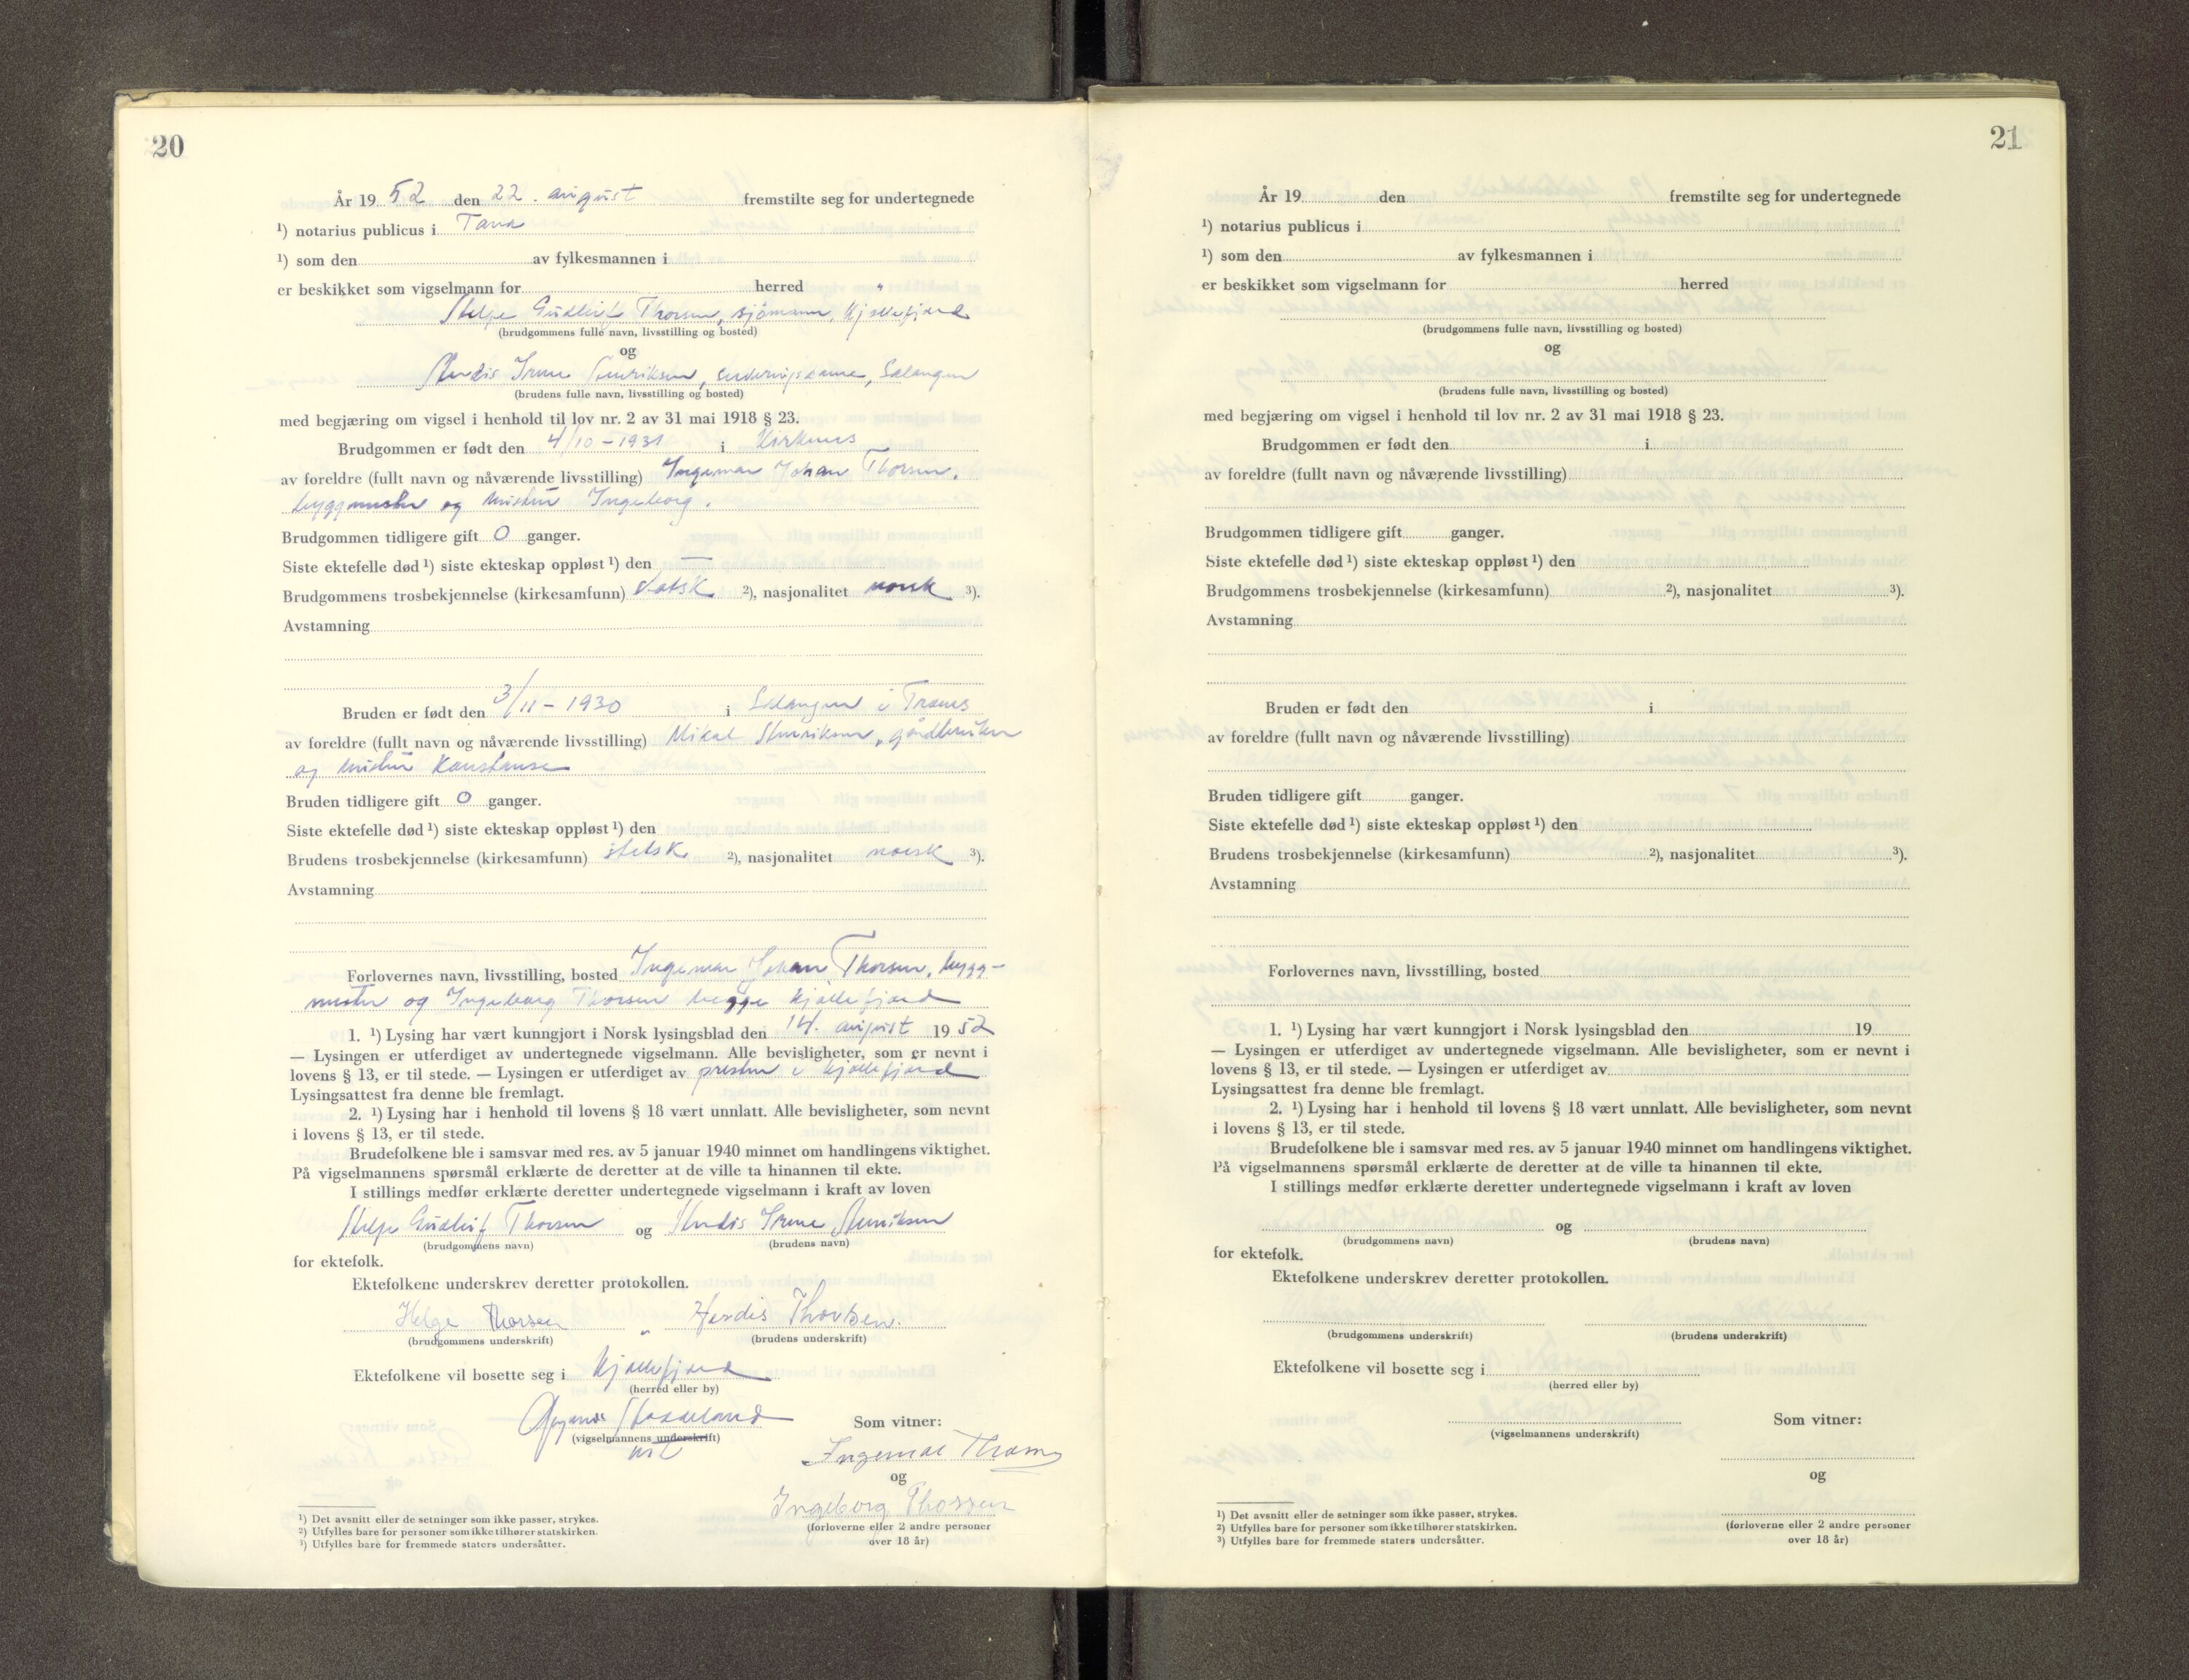 20
År 19 52 den 22. august fremstilte seg for undertegnede
¹) notarius publicus i Tana
¹) som den av fylkesmannen i
er beskikket som vigselmann for herred
Helge Gudleif Thorsen, sjömann, Kjöllefjord
(brudgommens fulle navn, livsstilling og bosted)
og
Herdis Irene Henriksen, serveringsdame, Salangen
(brudens fulle navn, livsstilling og bosted)
med begjæring om vigsel i henhold til lov nr. 2 av 31 mai 1918 § 23.
Brudgommen er født den 4/10-1931 i Kirkenes
av foreldre (fullt navn og nåværende livsstilling) Ingemar Johan Thorsen,
byggmester og hustru Ingeborg.
Brudgommen tidligere gift 0 ganger.
Siste ektefelle død ¹) siste ekteskap oppløst ¹) den —
Brudgommens trosbekjennelse (kirkesamfunn) statsk ²), nasjonalitet norsk ³).
Avstamning
Bruden er født den 3/11-1930 i Salangen i Troms
av foreldre (fullt navn og nåværende livsstilling) Mikal Henriksen, gårdbruker
og hustru Konstanse
Bruden tidligere gift 0 ganger.
Siste ektefelle død ¹) siste ekteskap oppløst ¹) den
Brudens trosbekjennelse (kirkesamfunn) statsk ²), nasjonalitet norsk ³).
Avstamning
Forlovernes navn, livsstilling, bosted Ingemar Johan Thorsen, bygg-
mester og Ingeborg Thorsen begge Kjöllefjord
1. ¹) Lysing har vært kunngjort i Norsk lysingsblad den 14. august 19 52
— Lysingen er utferdiget av undertegnede vigselmann. Alle bevisligheter, som er nevnt i
lovens § 13, er til stede. — Lysingen er utferdiget av presten i Kjöllefjord
Lysingsattest fra denne ble fremlagt.
2. ¹) Lysing har i henhold til lovens § 18 vært unnlatt. Alle bevisligheter, som nevnt
i lovens § 13, er til stede.
Brudefolkene ble i samsvar med res. av 5 januar 1940 minnet om handlingens viktighet.
På vigselmannens spørsmål erklærte de deretter at de ville ta hinannen til ekte.
I stillings medfør erklærte deretter undertegnede vigselmann i kraft av loven
Helge Gudleif Thorsen og Herdis Irene Henriksen
(brudgommens navn) (brudens navn)
for ektefolk.
Ektefolkene underskrev deretter protokollen.
Helge Thorsen Herdis Thorsen.
(brudgommens underskrift) (brudens underskrift)
Ektefolkene vil bosette seg i Kjöllefjord
(herred eller by)
(vigselmannens underskrift)
Som vitner:
Ingemar Thorsen
og
Ingeborg Thorsen
(forloverne eller 2 andre personer
over 18 år)
¹) Det avsnitt eller de setninger som ikke passer, strykes.
²) Utfylles bare for personer som ikke tilhører statskirken.
³) Utfylles bare for fremmede staters undersåtter.
21
År 19 den fremstilte seg for undertegnede
¹) notarius publicus i
¹) som den av fylkesmannen i
er beskikket som vigselmann for herred
(brudgommens fulle navn, livsstilling og bosted)
og
(brudens fulle navn, livsstilling og bosted)
med begjæring om vigsel i henhold til lov nr. 2 av 31 mai 1918 § 23.
Brudgommen er født den i
av foreldre (fullt navn og nåværende livsstilling)
Brudgommen tidligere gift ganger.
Siste ektefelle død ¹) siste ekteskap oppløst ¹) den
Brudgommens trosbekjennelse (kirkesamfunn) ²), nasjonalitet ³).
Avstamning
Bruden er født den i
av foreldre (fullt navn og nåværende livsstilling)
Bruden tidligere gift ganger.
Siste ektefelle død ¹) siste ekteskap oppløst ¹) den
Brudens trosbekjennelse (kirkesamfunn) ²), nasjonalitet ³).
Avstamning
Forlovernes navn, livsstilling, bosted
1. ¹) Lysing har vært kunngjort i Norsk lysingsblad den 19
— Lysingen er utferdiget av undertegnede vigselmann. Alle bevisligheter, som er nevnt i
lovens § 13, er til stede. — Lysingen er utferdiget av
Lysingsattest fra denne ble fremlagt.
2. ¹) Lysing har i henhold til lovens § 18 vært unnlatt. Alle bevisligheter, som nevnt
i lovens § 13, er til stede.
Brudefolkene ble i samsvar med res. av 5 januar 1940 minnet om handlingens viktighet.
På vigselmannens spørsmål erklærte de deretter at de ville ta hinannen til ekte.
I stillings medfør erklærte deretter undertegnede vigselmann i kraft av loven
og
(brudgommens navn) (brudens navn)
for ektefolk.
Ektefolkene underskrev deretter protokollen.
(brudgommens underskrift) (brudens underskrift)
Ektefolkene vil bosette seg i
(herred eller by)
(vigselmannens underskrift)
Som vitner:
og
(forloverne eller 2 andre personer
over 18 år)
¹) Det avsnitt eller de setninger som ikke passer, strykes.
²) Utfylles bare for personer som ikke tilhører statskirken.
³) Utfylles bare for fremmede staters undersåtter.